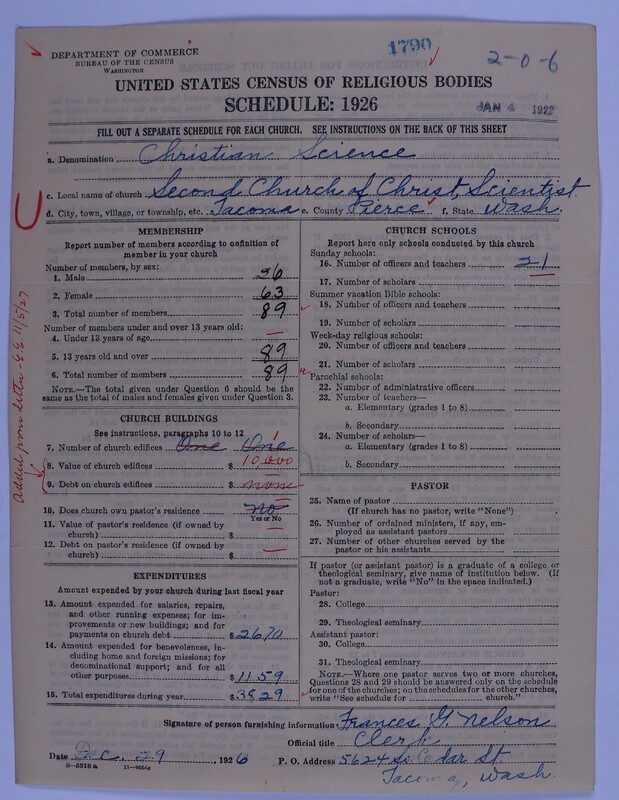 1790
2-0-6
DEPARTMENT OF COMMERCE
BUREAU OF THE CENSUS
WASHINGTON
UNITED STATES CENSUS OF RELIGIOUS BODIES
SCHEDULE: 1926
JAN 4 192
FILL OUT A SEPARATE SCHEDULE FOR EACH CHURCH. SEE INSTRUCTIONS ON THE BACK OF THIS SHEET
a. Denomination Christian Science
c. Local name of church Second Church of Christ, Scientist
d. City, town, village, or township, etc. Tacoma e. County Pierce f. State Wash.
MEMBERSHIP
Report number of members according to definition of
member in your church
Number of members, by sex:
1. Male 26
2. Female 63
3. Total number of members 89
Number of members under and over 13 years old:
4. Under 13 years of age —
5. 13 years old and over 89
6. Total number of members 89
NOTE.—The total given under Question 6 should be the
same as the total of males and females given under Question 3.
CHURCH BUILDINGS
See instructions, paragraphs 10 to 12
7. Number of church edifices One One 1
8. Value of church edifices $ 10,000
9. Debt on church edifices $ none
10. Does church own pastor's residence No
Yes or No
11. Value of pastor's residence (if owned by
church) $ —
12. Debt on pastor's residence (if owned by
church) $ —
added from letter 11/5/27
EXPENDITURES
Amount expended by your church during last fiscal year
13. Amount expended for salaries, repairs,
and other running expenses; for im-
provements or new buildings; and for
payments on church debt $ 2670
14. Amount expended for benevolences, in-
cluding home and foreign missions; for
denominational support; and for all
other purposes $ 1159
15. Total expenditures during year $ 3829
CHURCH SCHOOLS
Report here only schools conducted by this church
Sunday schools:
16. Number of officers and teachers 21
17. Number of scholars
Summer vacation Bible schools:
18. Number of officers and teachers
19. Number of scholars
Week-day religious schools:
20. Number of officers and teachers
21. Number of scholars
Parochial schools:
22. Number of administrative officers
23. Number of teachers—
a. Elementary (grades 1 to 8)
b. Secondary
24. Number of scholars—
a. Elementary (grades 1 to 8)
b. Secondary
PASTOR
25. Name of pastor
(If church has no pastor, write "None")
26. Number of ordained ministers, if any, em-
ployed as assistant pastors
27. Number of other churches served by the
pastor or his assistants
If pastor (or assistant pastor) is a graduate of a college or
theological seminary, give name of institution below. (If
not a graduate, write "No" in the space indicated.)
Pastor:
28. College
29. Theological seminary
Assistant pastor:
30. College
31. Theological seminary
NOTE.—Where one pastor serves two or more churches,
Questions 28 and 29 should be answered only on the schedule
for one of the churches; on the schedules for the other churches,
write "See schedule for church."
Signature of person furnishing information Frances G. Nelson
Official title Clerk
Date Dec. 29 1926 P. O. Address 5624 So. Cedar St.
Tacoma, Wash.